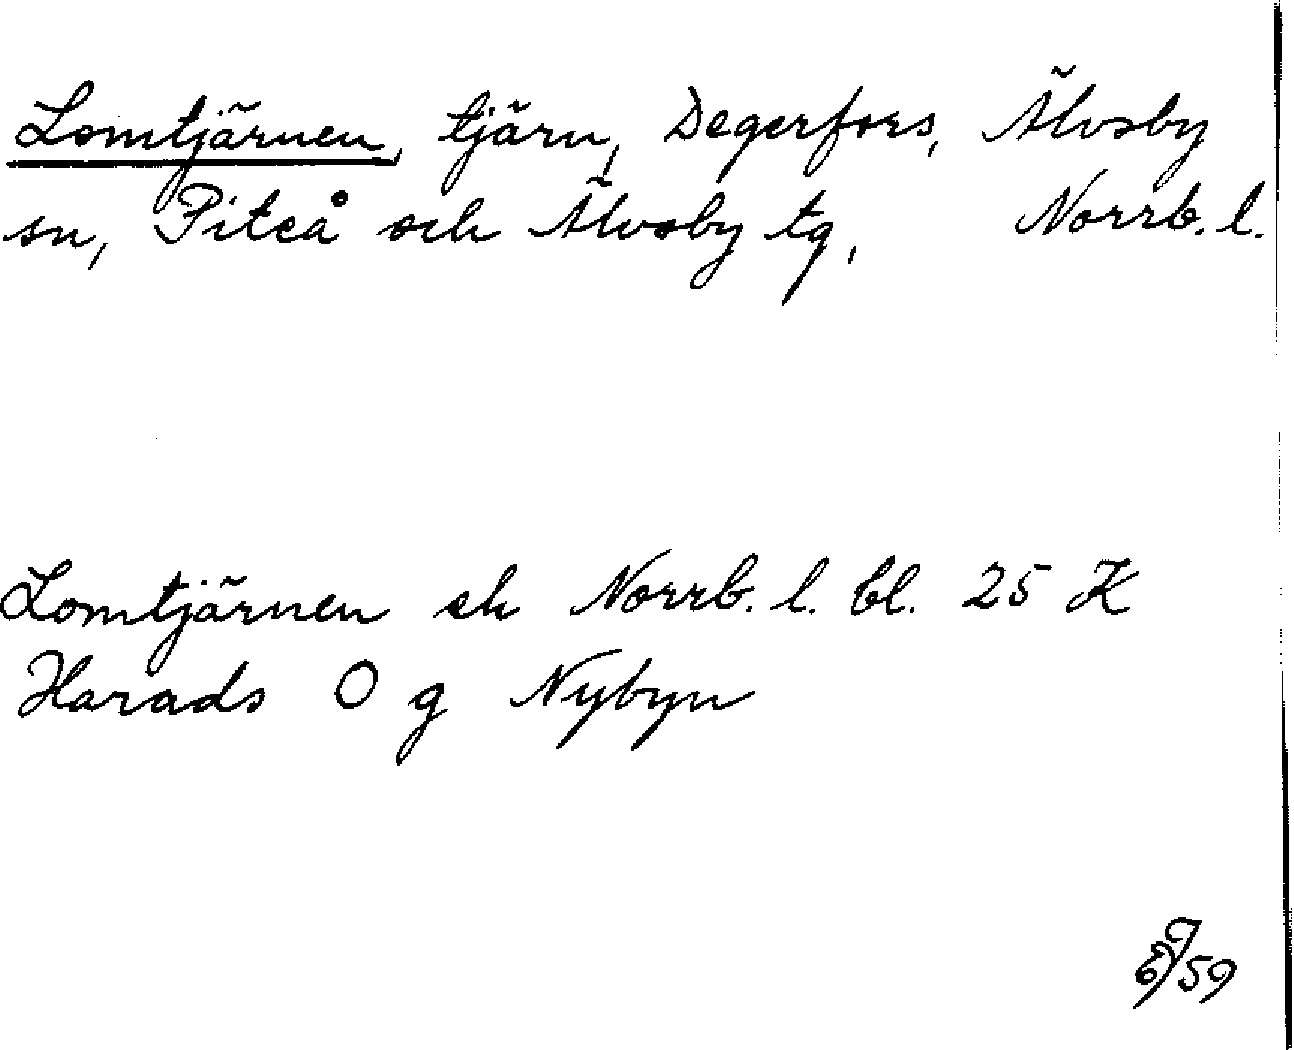 Lomtjärnen, tjärn, Degerfors, Älvsby
sn, Piteå och Älvsby tg, Norrb. l.
Lomtjärnen ek Norrb. l. bl. 25 K
Harads O g Nybyn
59